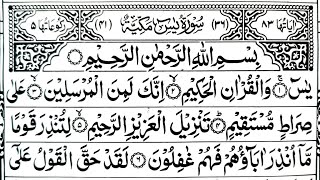 اٰیاتها ٨٣ (٣٦) سُوْرَةُ یٰسٓ مَكِّیَّةٌ (٤١) رکوعاتها ٥
بِسْمِ اللهِ الرَّحْمٰنِ الرَّحِیْمِ
یٰسٓ وَالْقُرْاٰنِ الْحَكِیْمِ اِنَّكَ لَمِنَ الْمُرْسَلِیْنَ عَلٰی
صِرَاطٍ مُّسْتَقِیْمٍ تَنْزِیْلَ الْعَزِیْزِ الرَّحِیْمِ لِتُنْذِرَ قَوْمًا
مَّاۤ اُنْذِرَ اٰبَآؤُهُمْ فَهُمْ غٰفِلُوْنَ لَقَدْ حَقَّ الْقَوْلُ عَلٰۤی